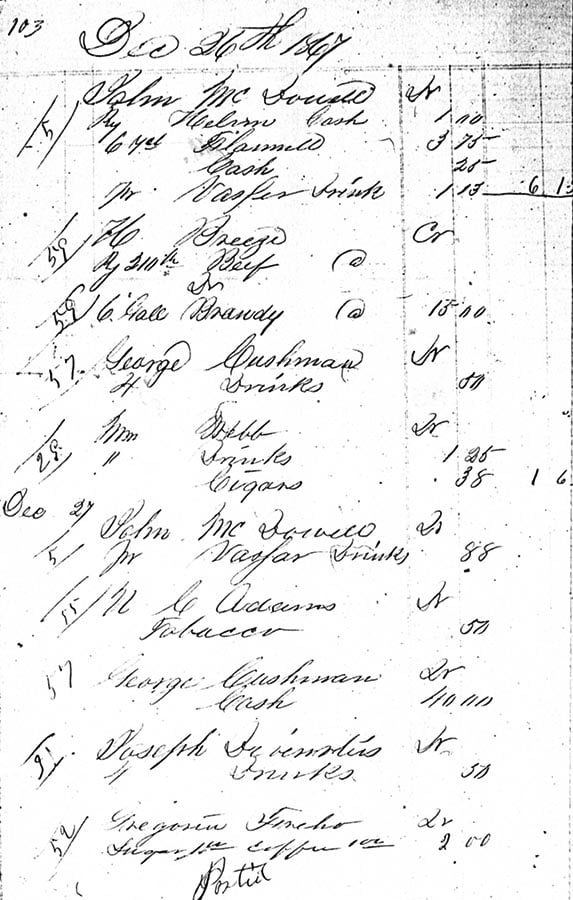 103
Dec 26th 1867
John McDowell Dr
5 By Helvrn Cash 1 00
6 yd Flannell 3 75
Cash 25
pr Vassar Drink 1 13 6 13
59 H Breeze Cr
By 210 lb Beef @
Dr
59 6 Gall Brandy @ 15 00
57 George Cushman Dr
4 Drinks 50
28 Wm Webb Dr
" Drinks 1 25
Cigars 38 1 6
Dec 27
John McDowell Dr
5 pr Vassar Drinks 88
55 N C Adams Dr
Tobacco 50
57 George Cushman Dr
Cash 40 00
91 Joseph Dr
" Drinks 50
52 Gregorio Dr
Sugar Coffee 2 00